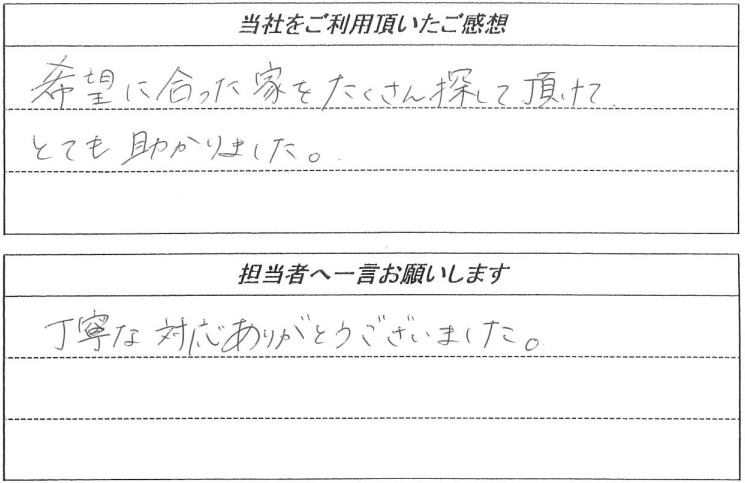 当社をご利用頂いたご感想
希望に合った家をたくさん探して頂けて
とても助かりました。
担当者へ一言お願いします
丁寧な対応ありがとうございました。